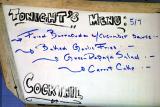 TONIGHT'S MENU: 5/7
→ Fried Barracuda w/cucumber sauce -
→ Baked Garlic Fries -
→ Green Papaya Salad -
→ Carrot Cake -
COCKTAIL